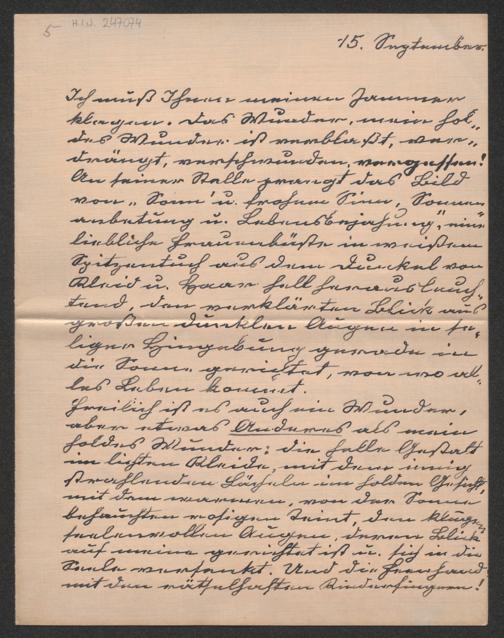 5
H.I.N. 247074
15. September.
Ich muß Ihnen meinen Jammer
klagen. Das Wunder, mein hol„
des Wunder ist verblaßt, ver„
drängt, verschwunden, vergessen!
An seiner Stelle prangt das Bild
von „Sonn' u. frohem Sinn, Sonnen
anbetung u. Lebensbejahung", eine
liebliche Frauenbüste in weißem
Spitzentuch aus dem Dunkel von
Kleid u. Haar hell herausleuch„
tend, den verklärten Blick aus
großen dunklen Augen in se„
liger Hingebung gerade in
die Sonne gerichtet, von wo al„
les Leben kommt.
Freilich ist es auch ein Wunder,
aber etwas Anderes als mein
holdes Wunder: die helle Gestalt
im lichten Kleide, mit dem innig
strahlenden Lächeln im holden Gesicht,
mit dem warmen, von der Sonne
behauchten rosigen Teint, den klugen
seelenvollen Augen, deren Blick
auf meine gerichtet ist u. sich in die
Seele versenkt. Und die Feenhand
mit den rätselhaften Kinderfingern!